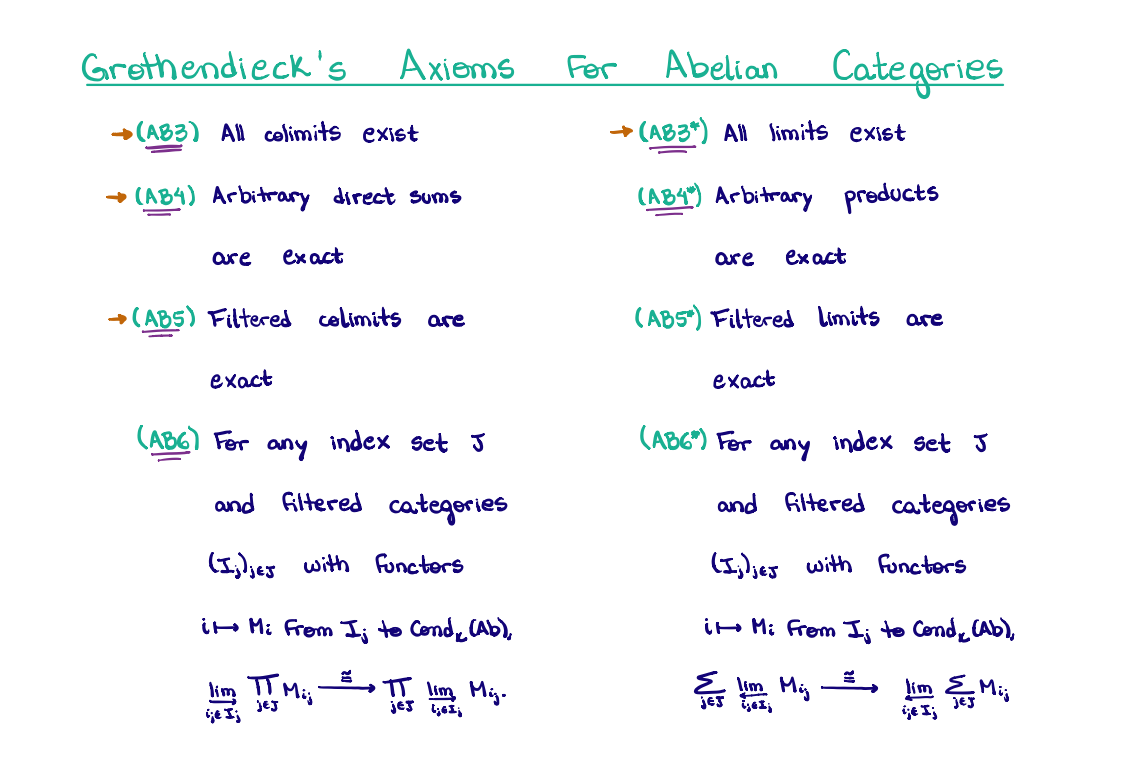 Grothendieck's Axioms For Abelian Categories
→ (AB3) All colimits exist
→ (AB4) Arbitrary direct sums
are exact
→ (AB5) Filtered colimits are
exact
(AB6) For any index set J
and filtered categories
(I_j)_{j∈J} with functors
i ↦ M_i from I_j to Cond_κ(Ab),
lim_{→ i_j∈I_j} ∏_{j∈J} M_{i_j} —≅→ ∏_{j∈J} lim_{→ i_j∈I_j} M_{i_j}.
→ (AB3*) All limits exist
(AB4*) Arbitrary products
are exact
(AB5*) Filtered limits are
exact
(AB6*) For any index set J
and filtered categories
(I_j)_{j∈J} with functors
i ↦ M_i from I_j to Cond_κ(Ab),
∑_{j∈J} lim_{← i_j∈I_j} M_{i_j} —≅→ lim_{← i_j∈I_j} ∑_{j∈J} M_{i_j}